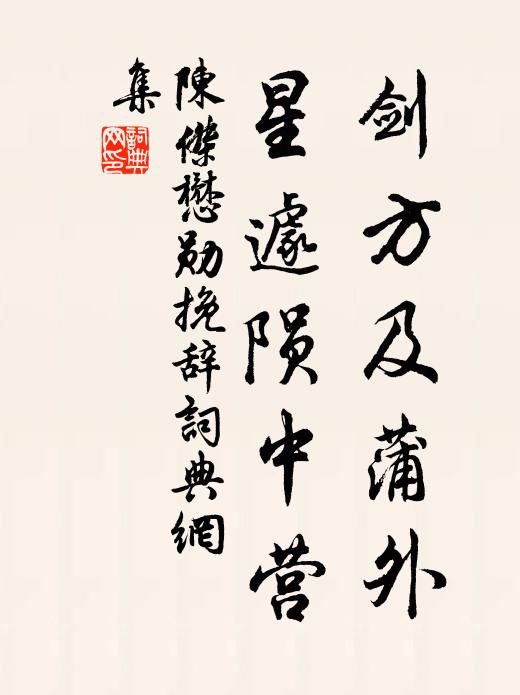 剑方及蒲外
星遽陨中营
陳傑懋勋挽辞詞典網
集
詞典网印